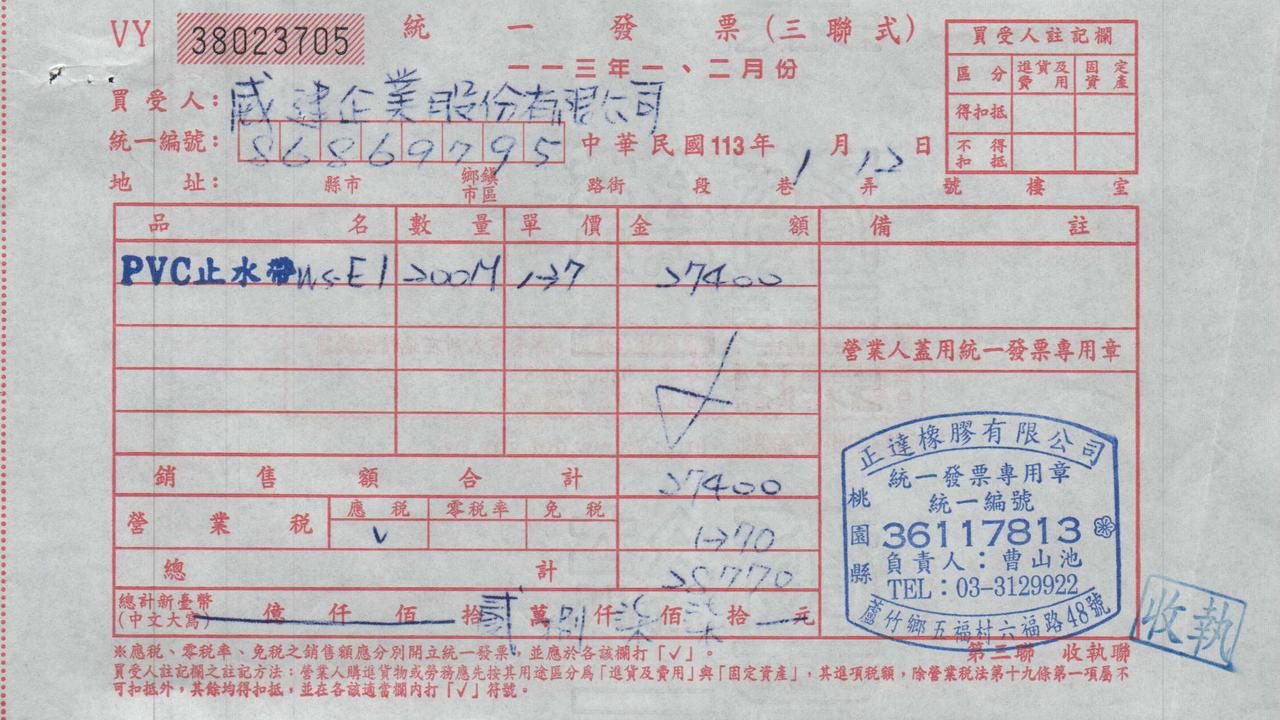 VY 38023705 統一發票(三聯式)
一一三年一、二月份
買受人註記欄
區分 進貨及費用 固定資產
得扣抵
不得扣抵
買受人：威建企業股份有限公司
統一編號：86869795 中華民國113年1月12日
地址： 縣市 鄉鎮市區 路街 段 巷 弄 號 樓 室
品名 數量 單價 金額 備註
PVC止水帶WS-E1 200M 137 27400
營業人蓋用統一發票專用章
銷售額合計 27400
營業稅 應稅 零稅率 免稅
√ 1370
總計 28770
總計新臺幣(中文大寫) 億 仟 佰 拾 貳 萬 捌 仟 柒 佰 柒 拾 元
正達橡膠有限公司
統一發票專用章
統一編號
36117813
桃園縣
負責人：曹山池
TEL：03-3129922
蘆竹鄉五福村六福路48號
收執
第三聯 收執聯
※應稅、零稅率、免稅之銷售額應分別開立統一發票，並應於各該欄打「√」。
買受人註記欄之註記方法：營業人購進貨物或勞務應先按其用途區分為「進貨及費用」與「固定資產」，其進項稅額，除營業稅法第十九條第一項屬不
可扣抵外，其餘均得扣抵，並在各該適當欄內打「√」符號。